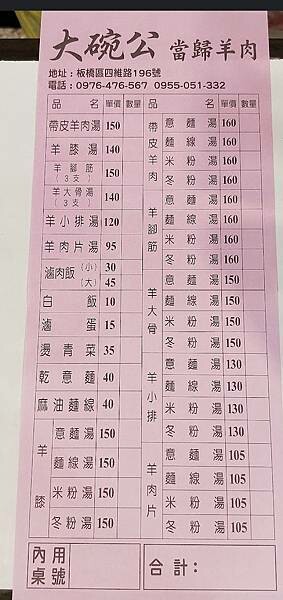 大碗公 當歸羊肉
地址：板橋區四維路196號
電話：0976-476-567 0955-051-332
品名 單價 數量
帶皮羊肉湯 150
羊膝湯 140
羊腳筋（3支） 150
羊大骨湯（3支） 140
羊小排湯 120
羊肉片湯 95
滷肉飯 （小） 30
（大） 45
白飯 10
滷蛋 15
燙青菜 35
乾意麵 40
麻油麵線 40
羊膝
意麵湯 150
麵線湯 150
米粉湯 150
冬粉湯 150
品名 單價 數量
帶皮羊肉
意麵湯 160
麵線湯 160
米粉湯 160
冬粉湯 160
羊腳筋
意麵湯 160
麵線湯 160
米粉湯 160
冬粉湯 160
羊大骨
意麵湯 150
麵線湯 150
米粉湯 150
冬粉湯 150
羊小排
意麵湯 130
麵線湯 130
米粉湯 130
冬粉湯 130
羊肉片
意麵湯 105
麵線湯 105
米粉湯 105
冬粉湯 105
內用桌號
合計：